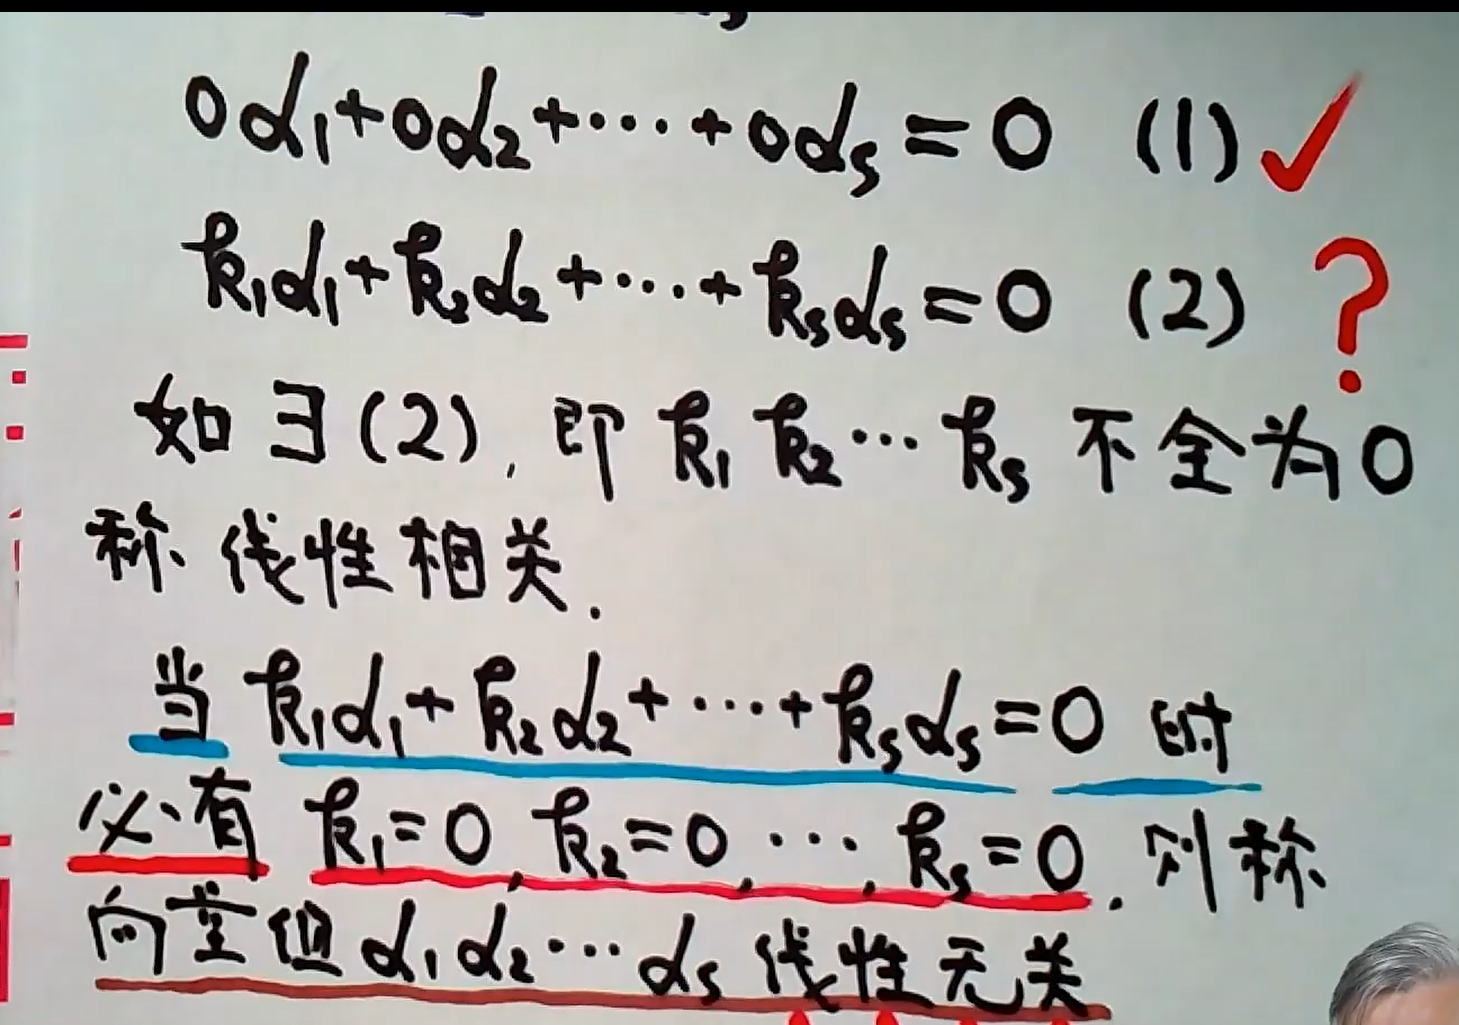 0α₁+0α₂+···+0αₛ=0 (1)✓
k₁α₁+k₂α₂+···+kₛαₛ=0 (2) ?
如∃(2), 即 k₁ k₂···kₛ 不全为0
称线性相关.
当 k₁α₁+k₂α₂+···+kₛαₛ=0 时
必有 k₁=0, k₂=0, ···, kₛ=0. 则称
向量组 α₁α₂···αₛ 线性无关